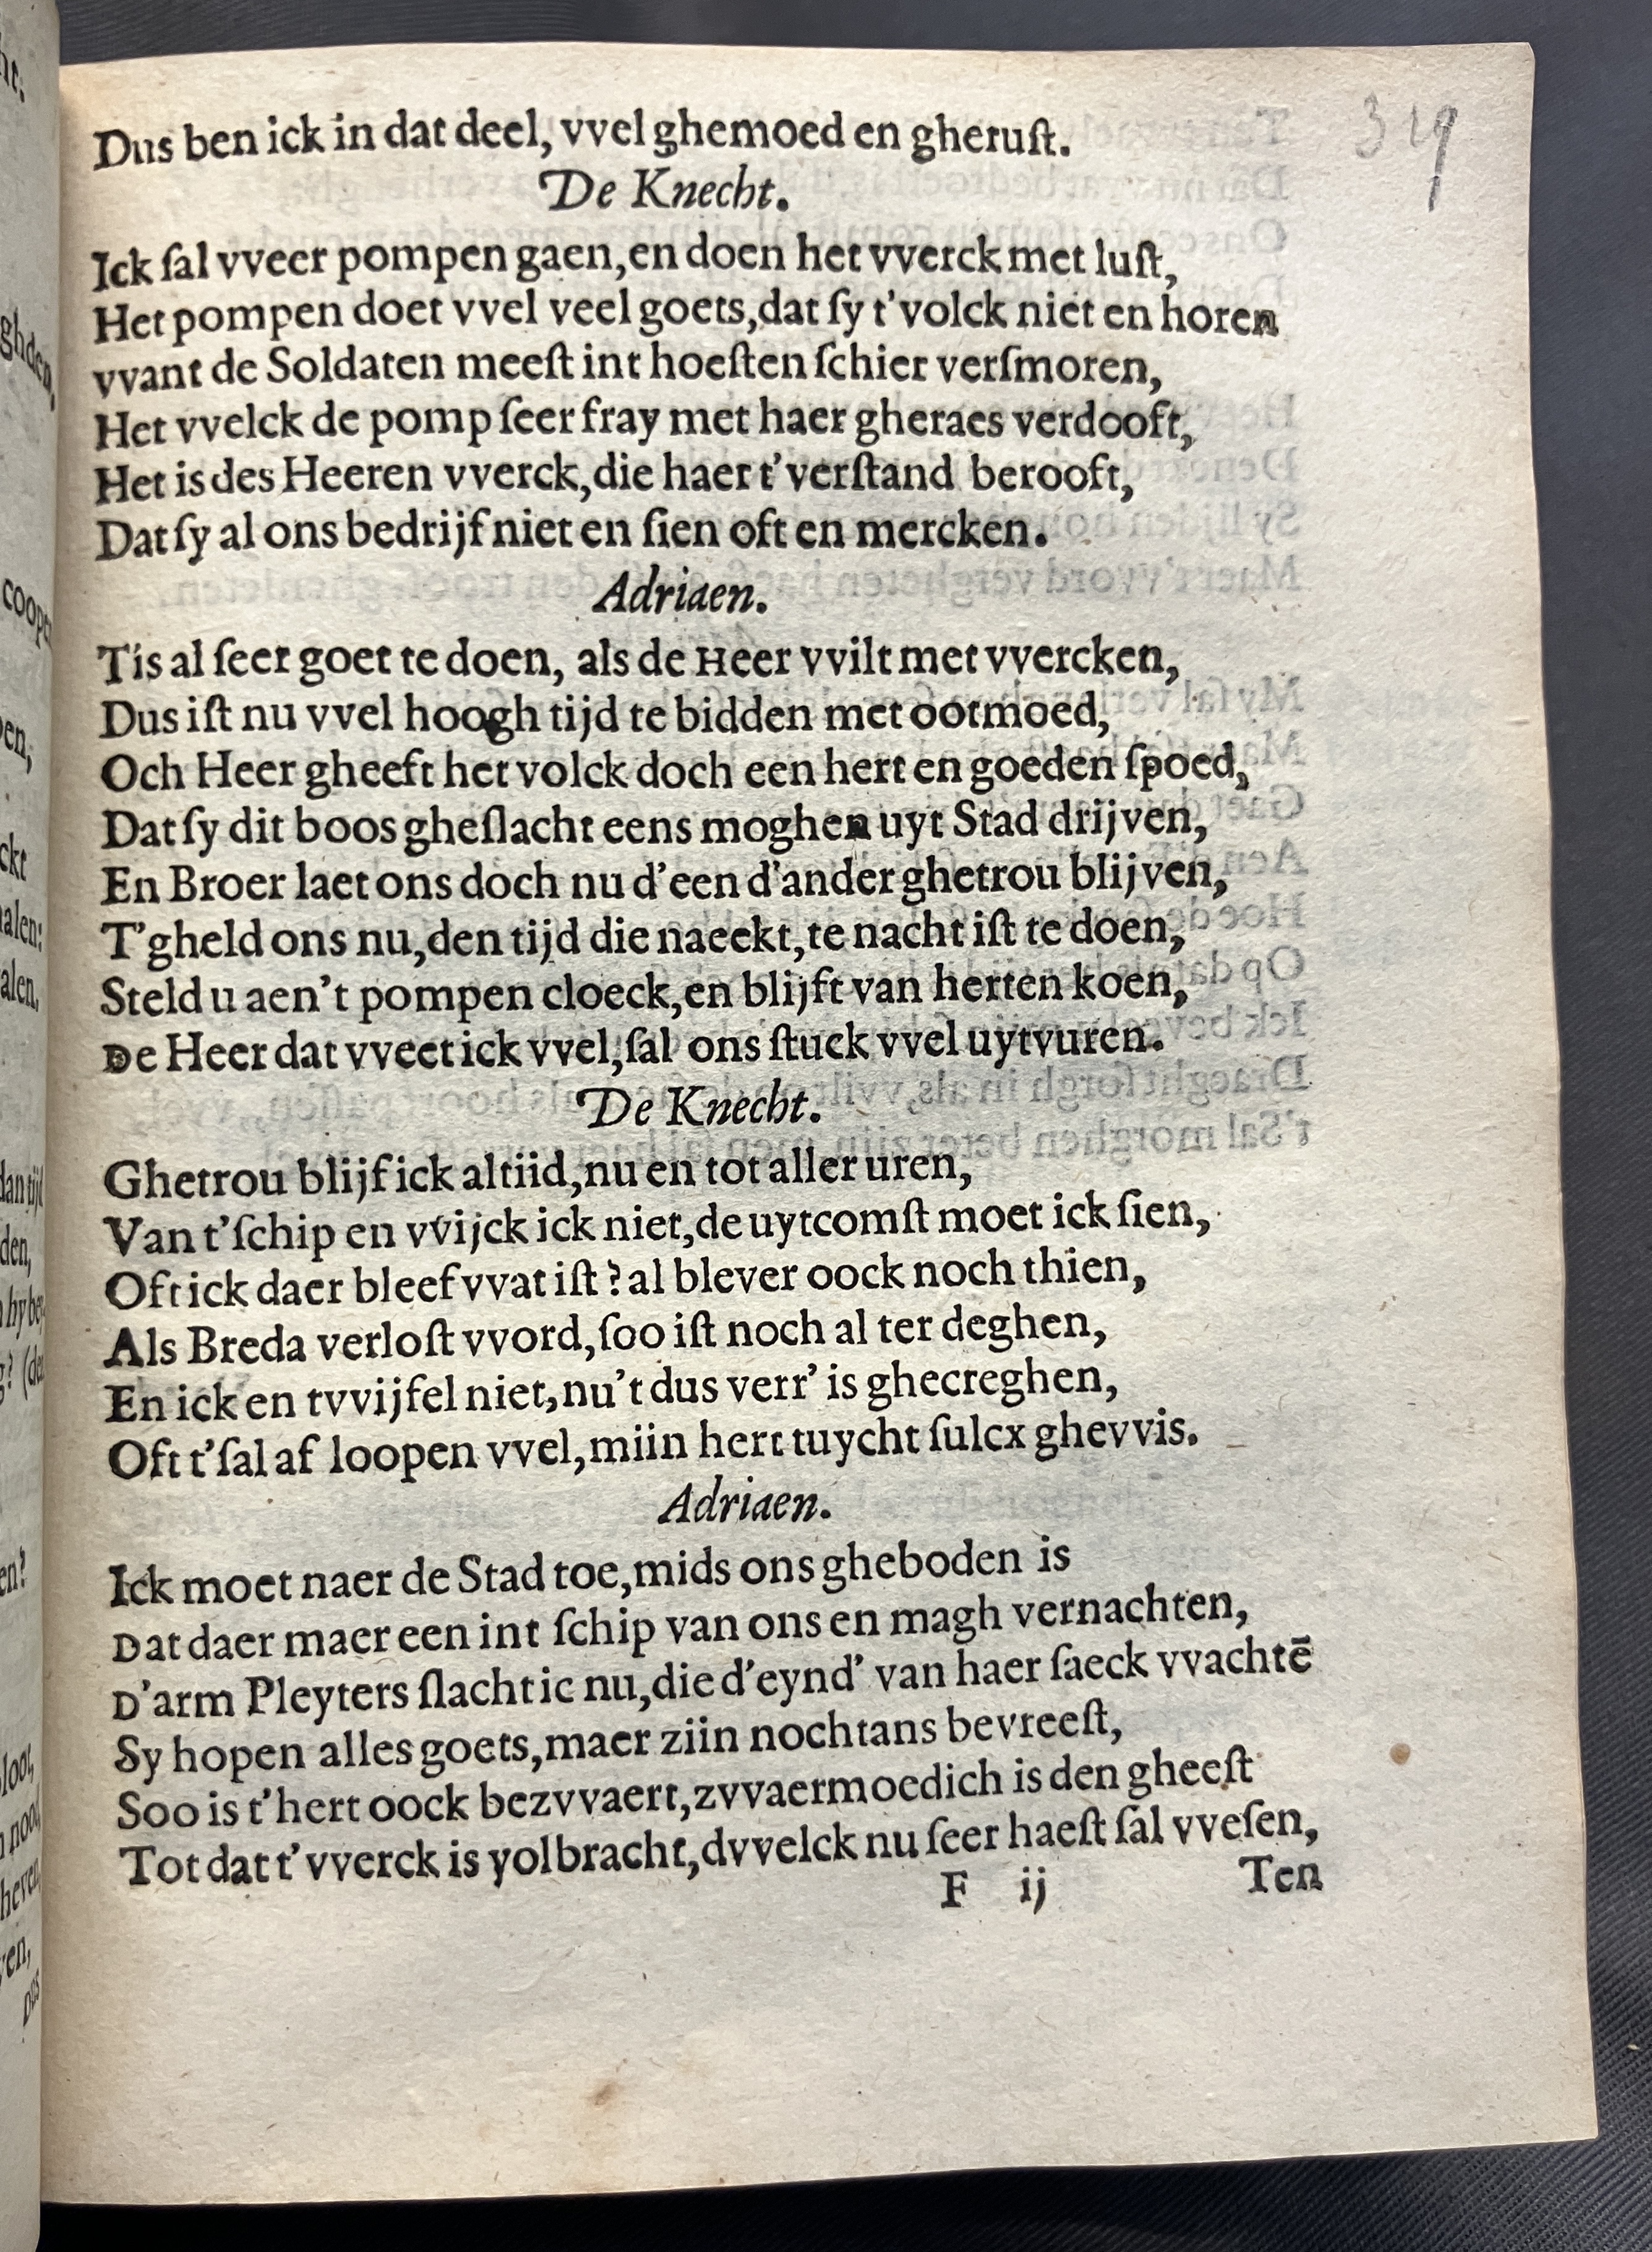 319
Dus ben ick in dat deel, vvel ghemoed en gheruſt.
De Knecht.
Ick ſal vveer pompen gaen, en doen het vverck met luſt,
Het pompen doet vvel veel goets, dat ſy t'volck niet en horen
vvant de Soldaten meeſt int hoeſten ſchier verſmoren,
Het vvelck de pomp ſeer fray met haer gheraes verdooft,
Het is des Heeren vverck, die haer t'verſtand berooft,
Dat ſy al ons bedrijf niet en ſien oft en mercken.
Adriaen.
Tis al ſeer goet te doen, als de Heer vvilt met vvercken,
Dus iſt nu vvel hoogh tijd te bidden met ootmoed,
Och Heer gheeft het volck doch een hert en goeden ſpoed,
Dat ſy dit boos gheſlacht eens moghen uyt Stad drijven,
En Broer laet ons doch nu d'een d'ander ghetrou blijven,
T'gheld ons nu, den tijd die naeekt, te nacht iſt te doen,
Steld u aen't pompen cloeck, en blijft van herten koen,
De Heer dat vveet ick vvel, ſal ons ſtuck vvel uytvuren.
De Knecht.
Ghetrou blijf ick altiid, nu en tot aller uren,
Van t'ſchip en vvijck ick niet, de uytcomſt moet ick ſien,
Oft ick daer bleef vvat iſt? al blever oock noch thien,
Als Breda verloſt vvord, ſoo iſt noch al ter deghen,
En ick en tvvijfel niet, nu't dus verr' is ghecreghen,
Oft t'ſal af loopen vvel, miin hert tuycht ſulcx ghevvis.
Adriaen.
Ick moet naer de Stad toe, mids ons gheboden is
Dat daer maer een int ſchip van ons en magh vernachten,
D'arm Pleyters ſlacht ic nu, die d'eynd' van haer ſaeck vvachtē
Sy hopen alles goets, maer ziin nochtans bevreeſt,
Soo is t'hert oock bezvvaert, zvvaermoedich is den gheeſt
Tot dat t'vverck is volbracht, dvvelck nu ſeer haeſt ſal vveſen,
F ij Ten